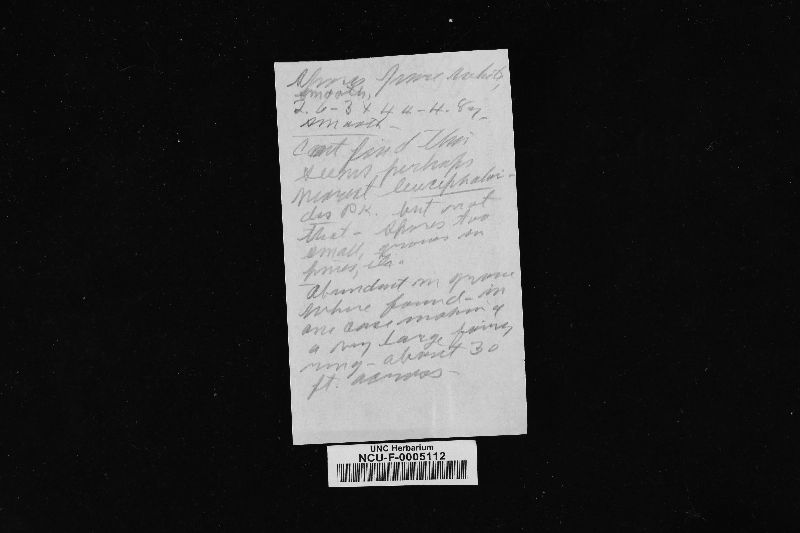 Spores pure white,
smooth,
2.6-3 x 4.4-4.8µ.
smooth -
Can't find this
seems perhaps
nearest leucephaloi-
des Pk. but not
that - spores too
small, grows in
pines, etc.
Abundant in grove
where found - in
one case making
a very large fairy
ring - about 30
ft. across -
UNC Herbarium
NCU-F-0005112